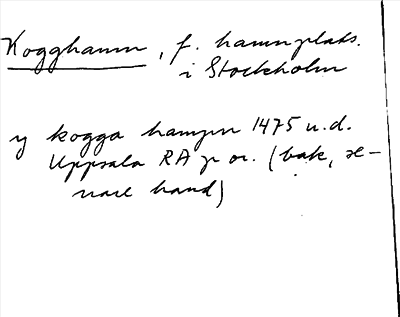 Kogghamn, f. hamnplats.
i Stockholm
y kogga hampn 1475 u.d.
Uppsala RA p or. (bak, se-
nare hand)